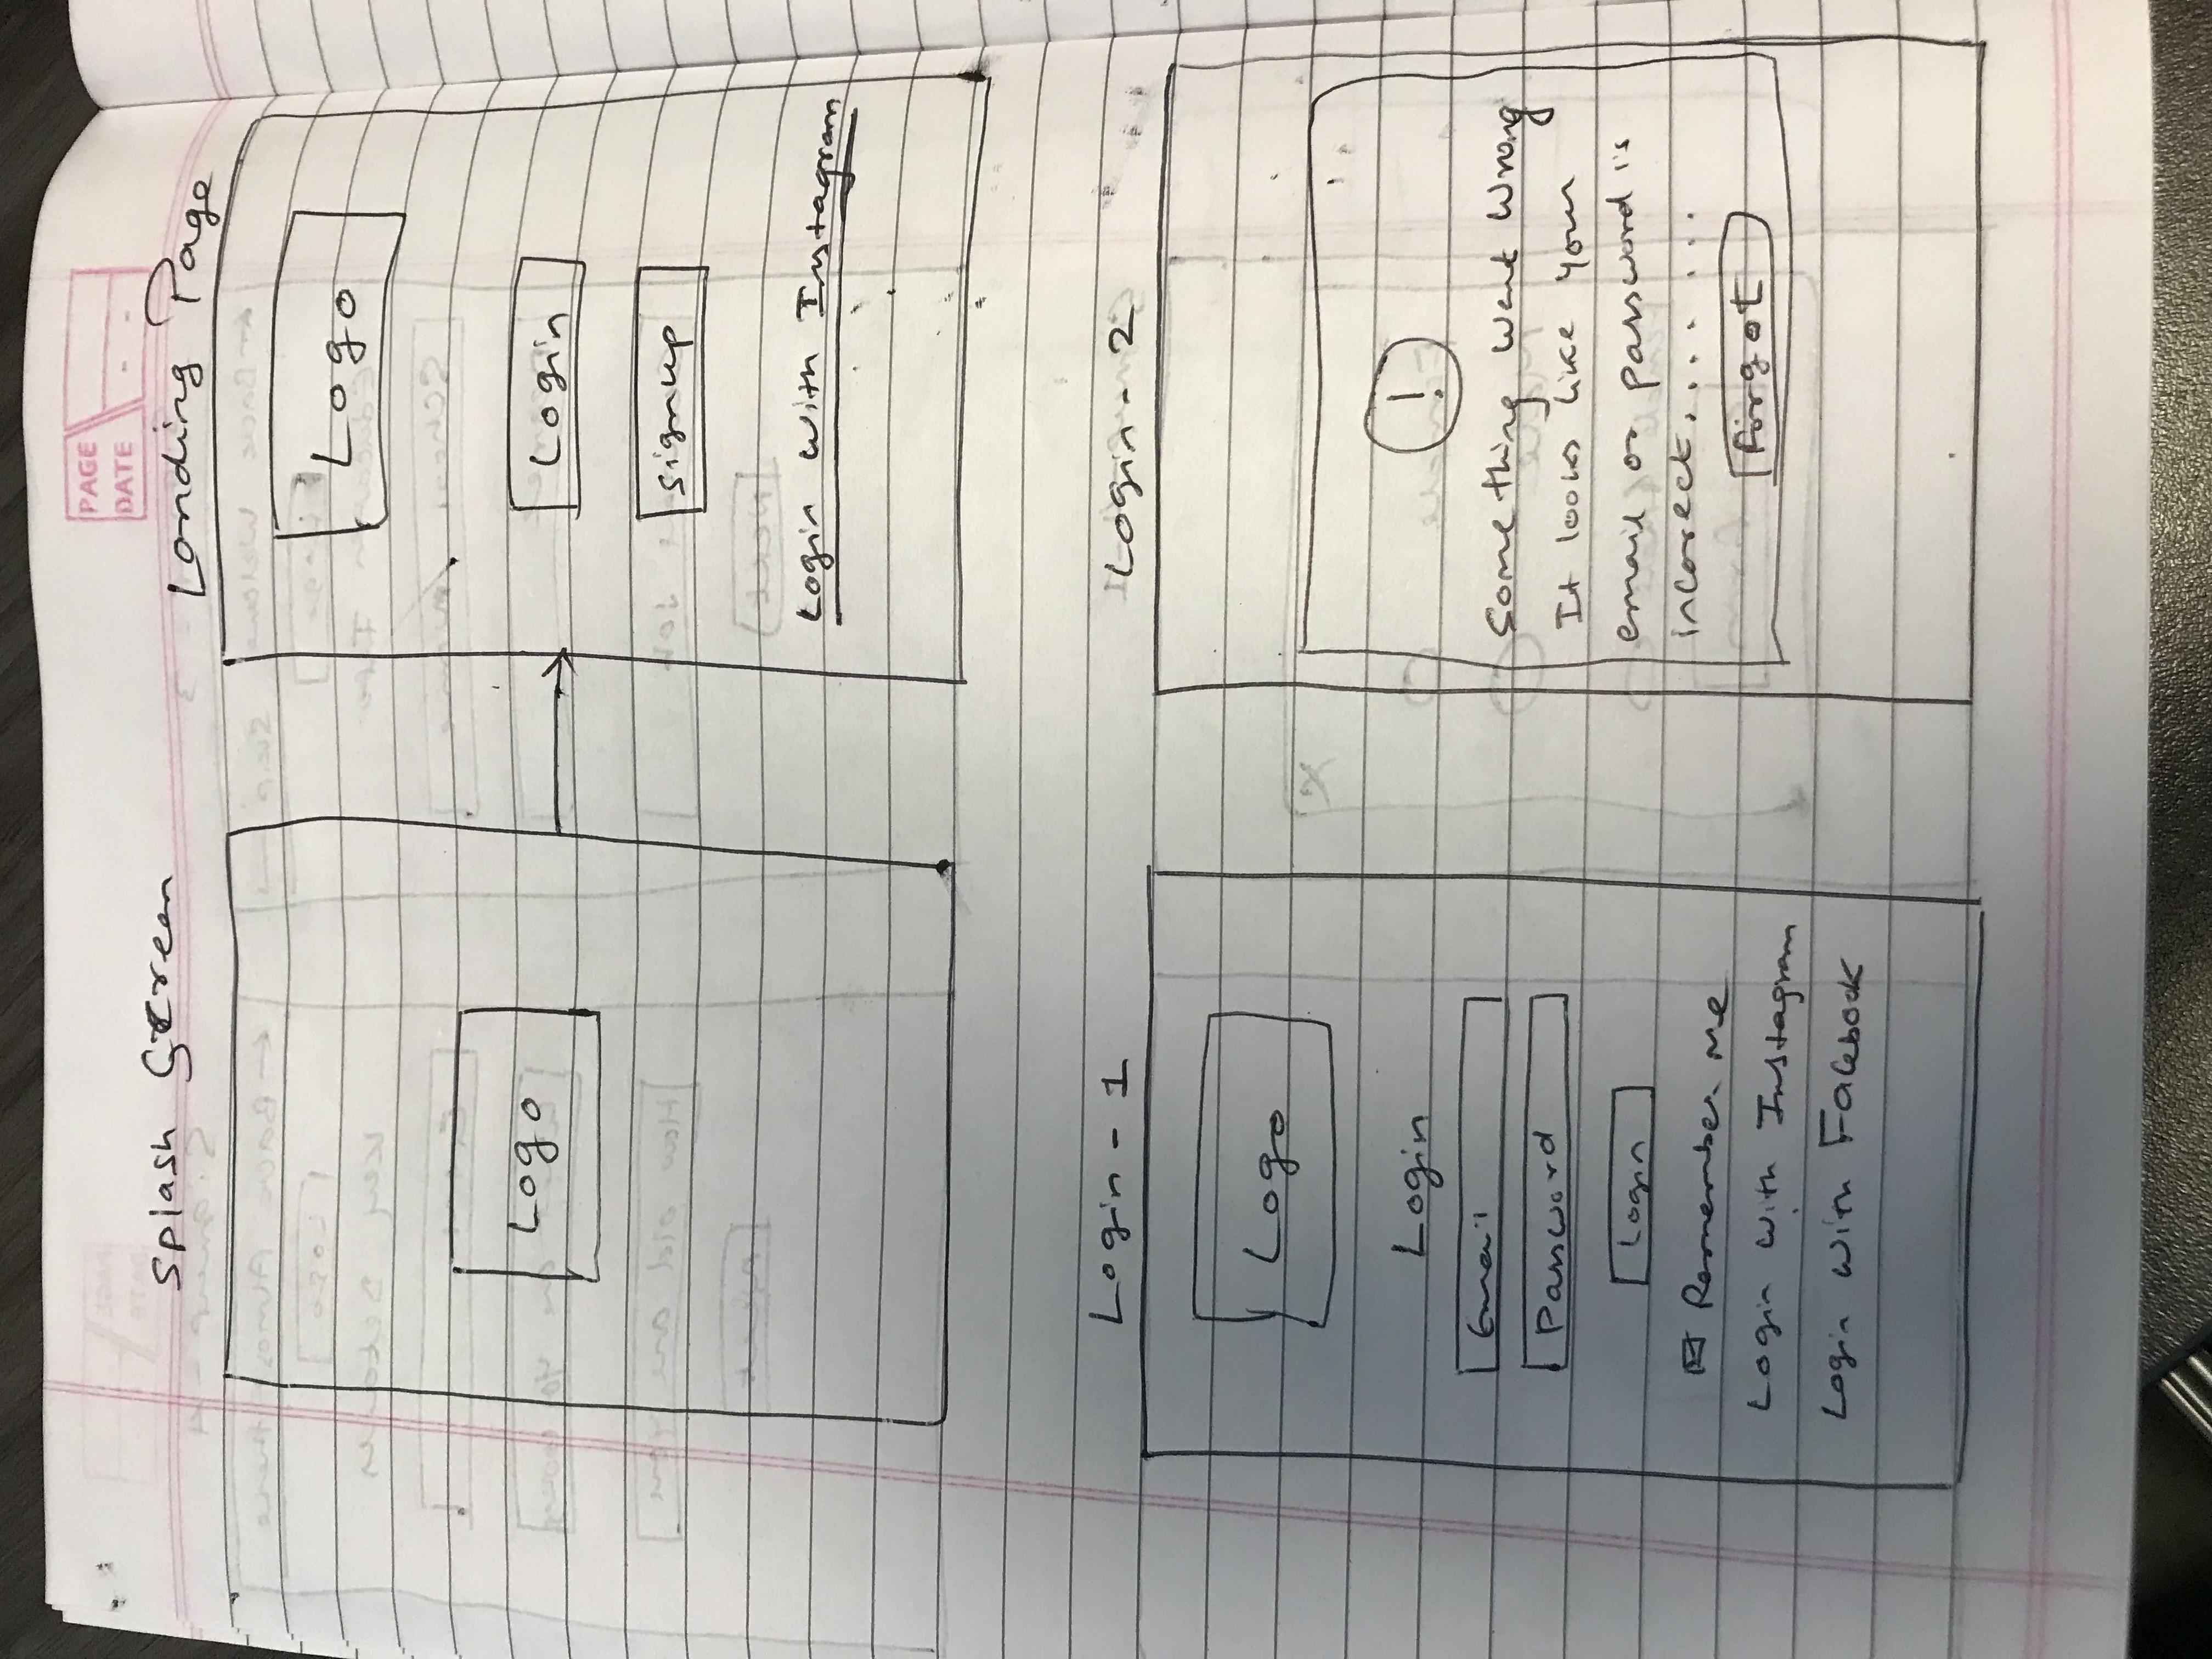 PAGE
DATE - -
Splash Screen
Landing Page
Logo
Logo
Login
signup
Login with Instagram
Login - 1
Login - 2
Logo
Login
Email
Password
Login
Remember me
Login with Instagram
Login with Facebook
!
Something went wrong
It looks like your
email or password is
incorect.... ...
Forgot